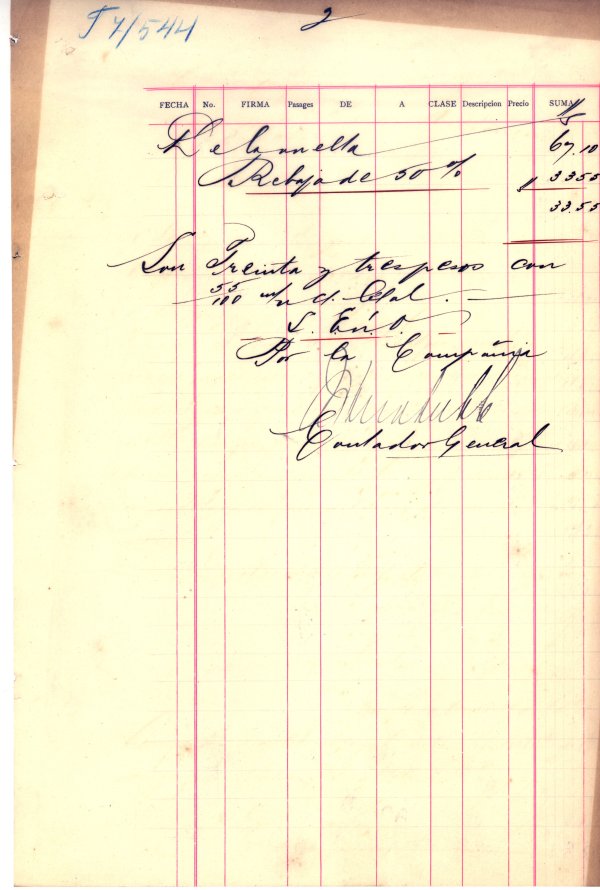 T 7/544
2
FECHA No. FIRMA Pasages DE A CLASE Descripcion Precio SUMA
De la vuelta 67.10
Rebaja de 50 % $ 33.55
33.55
Son Treinta y tres pesos con
55/100 m/n c. legal.
S. E. ú. O.
Por la Compañia
Contador General